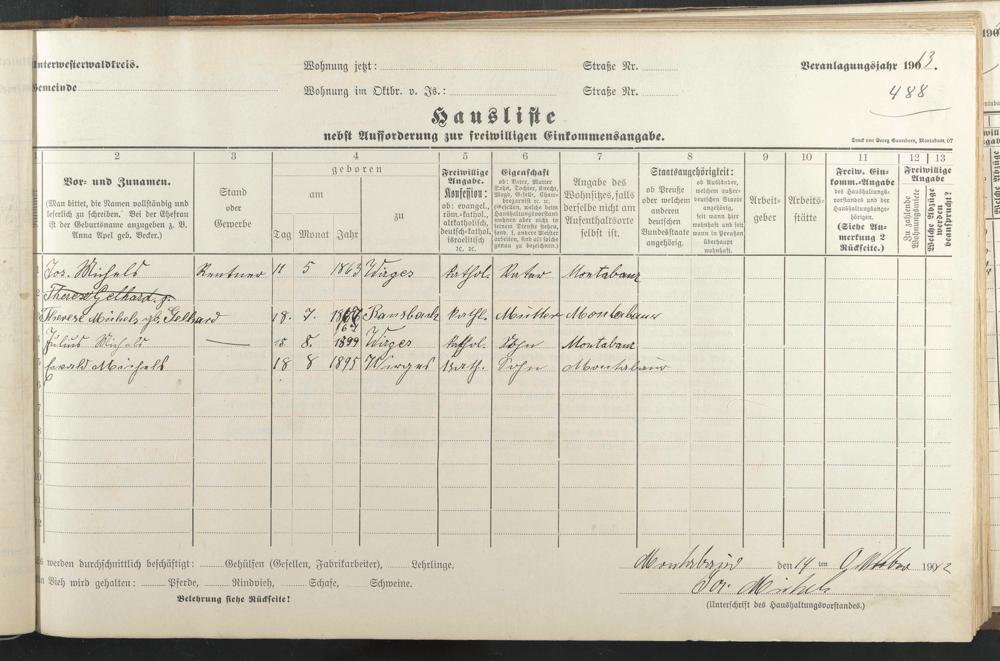 Unterwesterwaldkreis. Wohnung jetzt: Straße Nr. Veranlagungsjahr 1913.
Gemeinde Wohnung im Oktbr. v. Js.: Straße Nr. 488
Hausliste
nebst Aufforderung zur freiwilligen Einkommensangabe.
Druck von Georg Sauerborn, Montabaur. 07
2 3 4 5 6 7 8 9 10 11 12 13
Vor- und Zunamen.
(Man bittet, die Namen vollständig und
leserlich zu schreiben. Bei der Ehefrau
ist der Geburtsname anzugeben z. B.
Anna Apel geb. Becker.)
Stand
oder
Gewerbe
geboren
am
zu
Tag Monat Jahr
Freiwillige
Angabe.
Konfession:
ob: evangel.,
röm.-kathol.,
altkatholisch,
deutsch-kathol.,
israelitisch
ꝛc. ꝛc.
Eigenschaft
ob: Vater, Mutter
Sohn, Tochter, Knecht,
Magd, Geselle, Cham-
bregarnist ꝛc. ꝛc.
(Gesellen, welche beim
Haushaltungsvorstand
wohnen aber nicht in
seinem Dienste stehen,
sond. f. andere Meister
arbeiten, sind als solche
genau zu bezeichnen.)
Angabe des
Wohnsitzes, falls
derselbe nicht am
Aufenthaltsorte
selbst ist.
Staatsangehörigkeit:
ob Preuße
oder welchem
anderen
deutschen
Bundesstaate
angehörig.
ob Ausländer,
welchem außer-
deutschen Staate
angehörig,
seit wann hier
wohnhaft und seit
wann in Preußen
überhaupt
wohnhaft.
Arbeit-
geber
Arbeits-
stätte
Freiw. Ein-
komm.-Angabe
des Haushaltungs-
vorstandes und der
Haushaltungsange-
hörigen.
(Siehe An-
merkung 2
Rückseite.)
Freiwillige
Angabe
Zu zahlende
Wohnungsmiete
Welche Abzüge
werden
beansprucht?
Jos. Michels Rentner 11 5 1863 Wirges kathol. Vater Montabaur
Therese Gelhard g.
Therese Michels gb. Gelhard 18. 7. Ransbach kathl. Mutter Montabaur
Julius Michels 8. 1899 Wirges kathol. Sohn Montabaur
Ewald Michels 18 8 1895 Wirges kath. Sohn Montabaur
Es werden durchschnittlich beschäftigt: Gehülfen (Gesellen, Fabrikarbeiter), Lehrlinge.
An Vieh wird gehalten: Pferde, Rindvieh, Schafe, Schweine.
Belehrung siehe Rückseite!
Montabaur den 14 ten Oktober 1912
Jos. Michels
(Unterschrift des Haushaltungsvorstandes.)